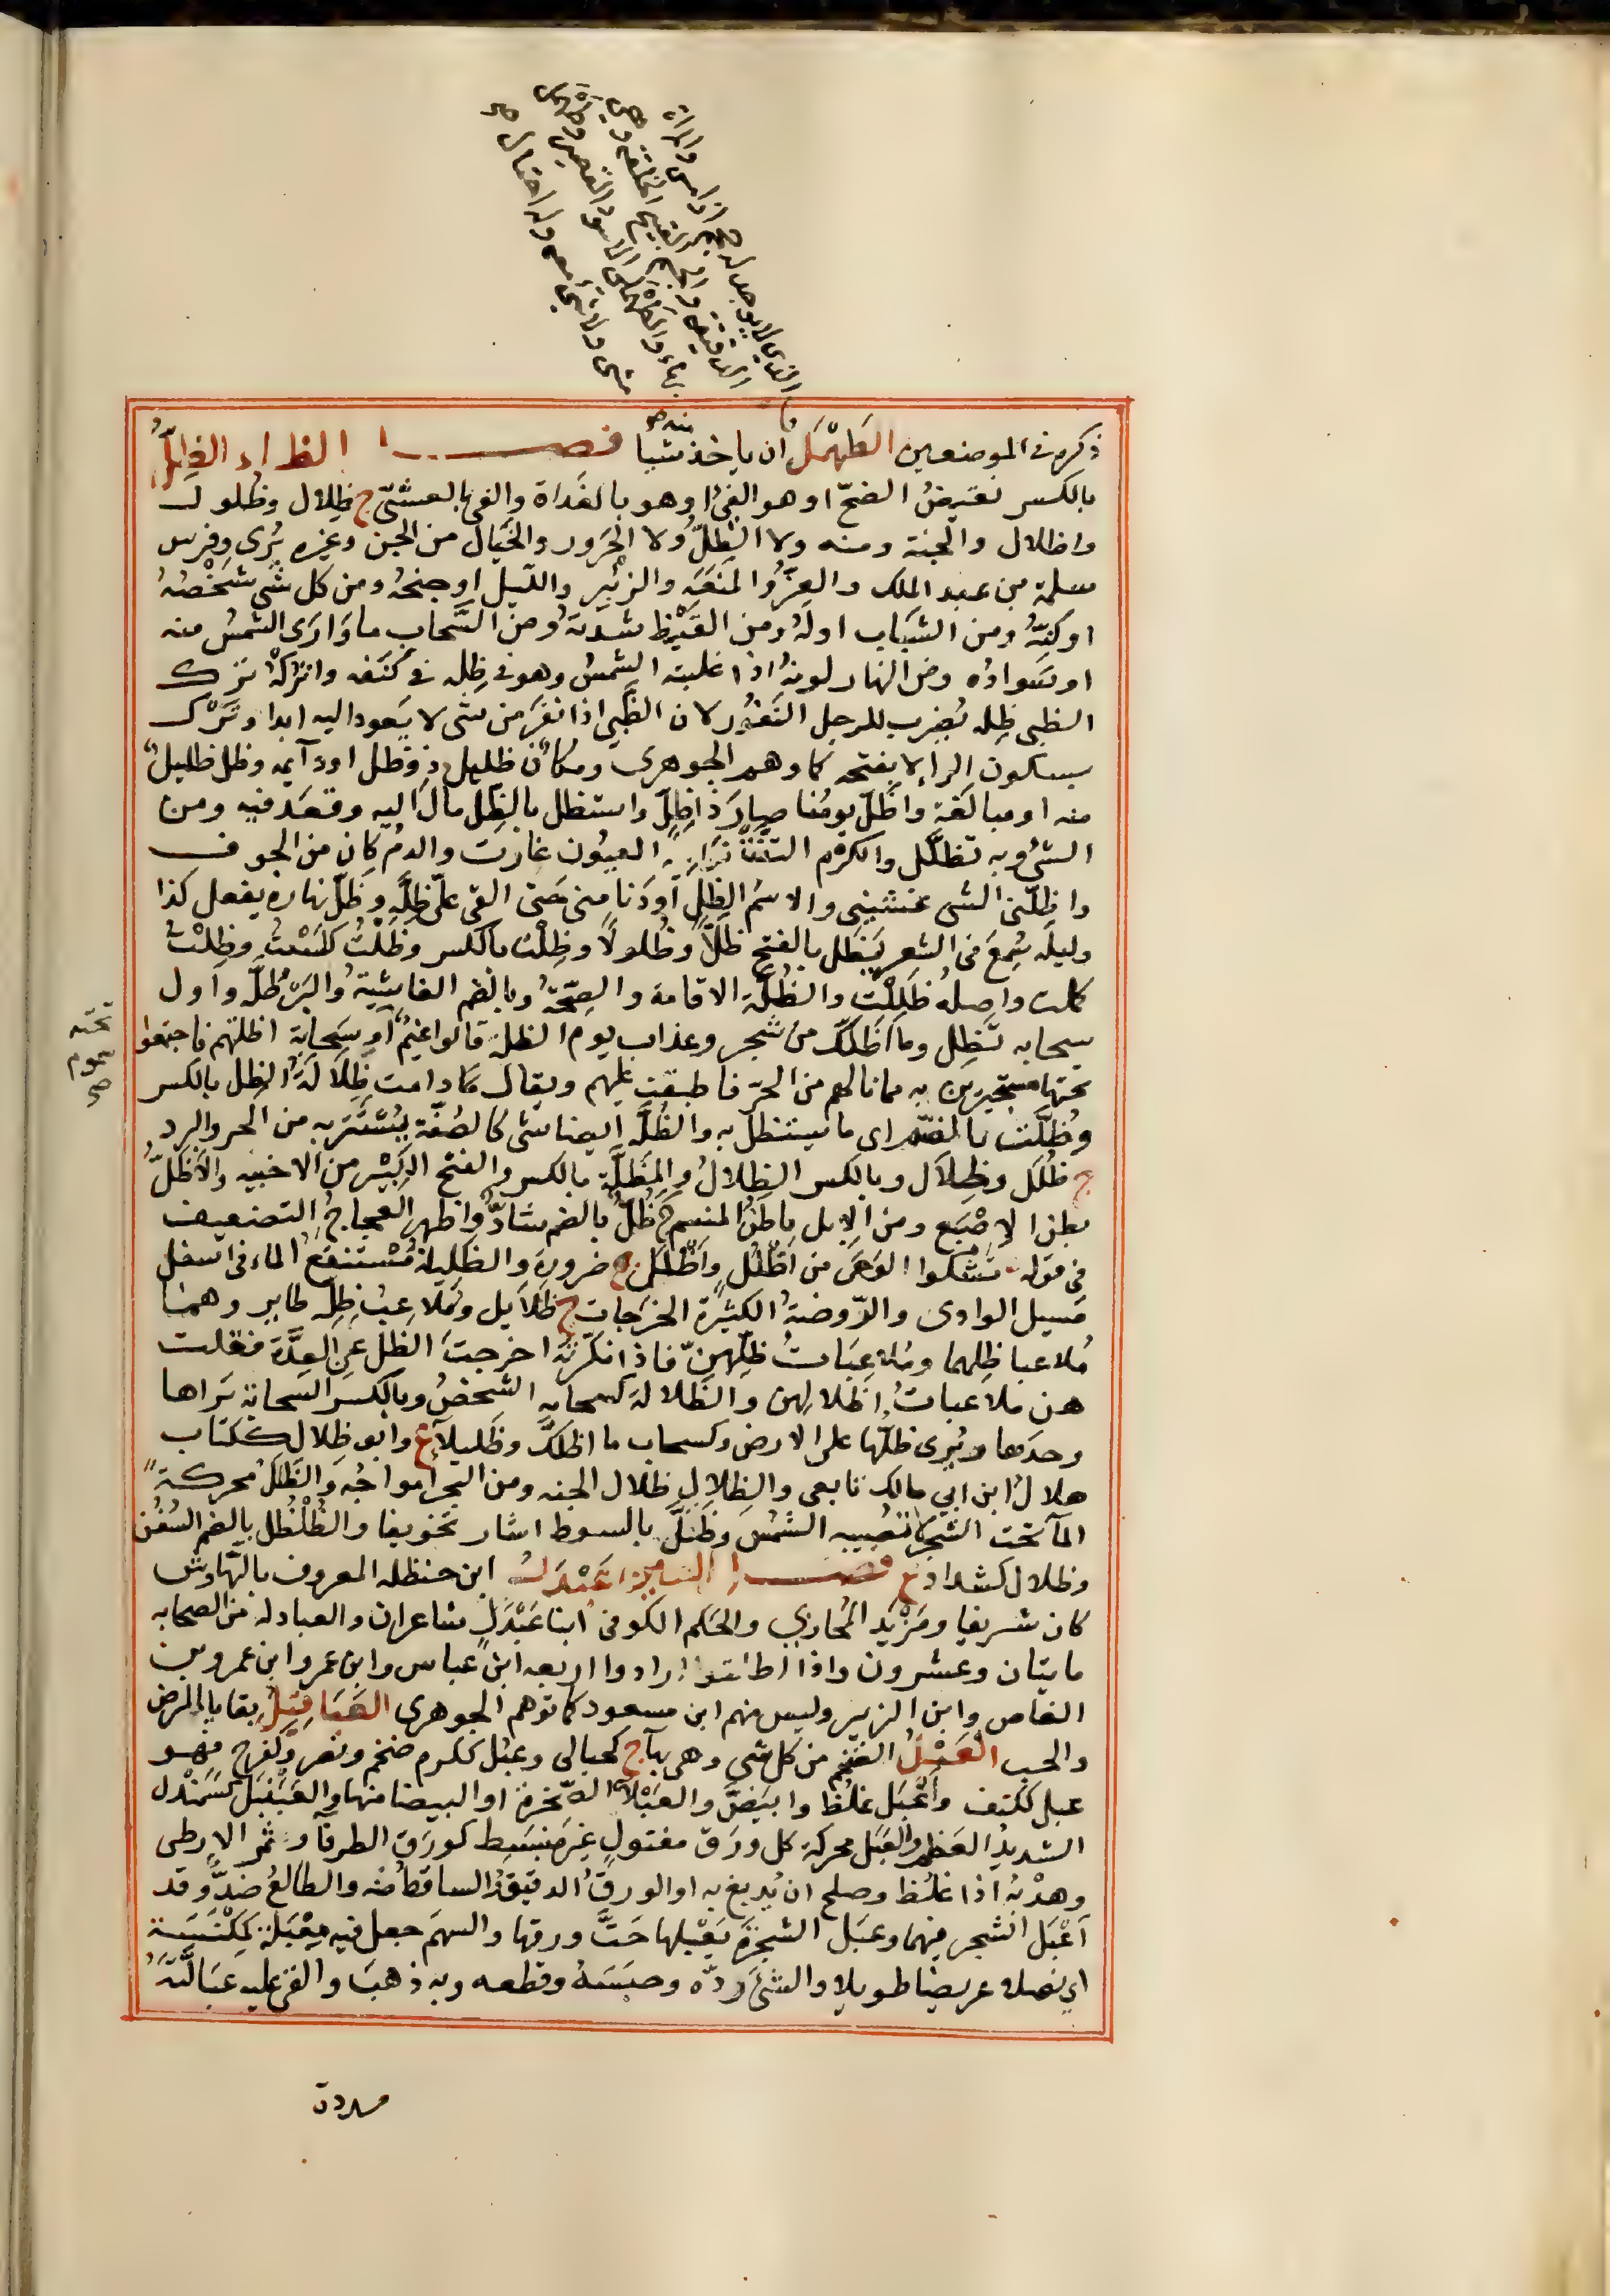 الذي لا يوجد له حجم اذا مس والمراة
الدقيقة والجسيم القبيح الخلقة وهي
بهاء والطهملي الاسود القصير
شي ولا شي معه وله احتال صح
ذكره في الموضعين الطَهْمَل ان ياخذ شيا منه صح فصــــل الظاء الظِلُّ
بالكسر نقيضُ الضحّ او هو الفئ او هو بالغَداة والفئ بالعشيّ ج ظِلال وظُلول
واظلال والجنة ومنه ولا الظِلُّ ولا الحَرور والخَيال من الجن وغيره يُرى وفرس
مسلمة بن عبد الملك والعِزُّ والمَنَعَة والزئبر والليل او جنحُه ومن كل شي شَخْصُهُ
او كِنّهُ ومن الشَبَاب اولَهُ ومن القَيْظ شدته ومن السَّحاب ما وَارَى الشمسُ منه
او سَوادُه ومن النهار لونهُ اذا غلبته الشمسُ وهو في ظِله في كَنَفه واترُكْهُ ترك
الظبي ظِله يُضرب للرجل النَفُور لان الظَبْي اذا نفَرَ من شي لا يَعود اليه ابدا وتَرْك
بسكون الراء لا بفتحه كما وهم الجوهرى ومكان ظليل ذو ظل او دآيمه وظل ظليل
منه او مبالَغة واظَلّ يومُنا صارَ ذا ظِلّ واستظل بالظِل مالَ اليه وقعَد فيه ومن
الشئ وبه تظلَّل والكرْم التفّت نَوَاميه العيُون غارَت والدمُ كان من الجوف
واظِلّني الشى غشيني والاسمُ الظِلّ او دَنا مني حَتى القى عليّ ظِلَّه وظَلّ نهاره يفعل كذا
وليلَه سُمِعَ في الشعر يَظل بالفتح ظَلاًّ وظُلولاً وظِلْتُ بالكسر وظَلْتُ كلَسْتُ وظِلْتُ
كملت واصلُه ظَلِلْت والظُلَّة الاقامة والصِحّة وبالضم الغاشيةُ والبُرْطُلّة واول
سحابه تُظِل وما اظَلّكَ من شجر وعذاب يوم الظلة قالوا غيمٌ او سَحابة اظلتهم فاجتمعوا
تحته
سموم
صح
تحتها مستجيرين به مما نالهم من الحرّ فاطبقت عليهم ويقال ما دامت ظِلالَةُ الظِل بالكسر
وظُلّته بالضمّ اى ما يستظل به والظُلَّة ايضا شى كالصُفّة يُستَتر به من الحر والبرد
ج ظُلَل وظِلاَل وبالكسر الظِلالُ والمِظَلَّة بالكسر والفتح الكبير من الاخبيه والاَظَلّ
بطن الاِصْبَع ومن الابل باطنُ المنسم ج ظُلّ بالضم شاذّ واظهر العجاجُ التضعيف
في قوله تشكوا الوَجَى من اَظْلَلٍ واَظْلَل ضرورة والظليلة مُسْتنقَع الماء في اسفل
مسيل الوادى والرّوضةُ الكثيرة الخرَجات ج ظَلاَيل ومُلاعِبُ ظِلّه طاير وهما
مُلاعبا ظِلهما ومُلاعِبَاتُ ظِلّهنّ فاذا نكّرته اخرجتَ الظل عن العِدَّة فقلت
هن مُلاعبات اظلالهن والظَلالة كسحابه الشخصُ وبالكسر السحابة تَراها
وحدها ويُرى ظلُّها على الارض وكسحاب ما اظلّكَ وظَليلاَء ع وابو ظِلال ككتاب
هلالُ ابن ابي مالك تابعى والظِلال ظلال الجنه ومن البحر امواجُه والظَلَلُ محركةً
المآ تحت الشجر لا تُصيبه الشمسُ وظَلّلَ بالسوط اشار تخويفا والظُلْظُل بالضم السُفُن
وظلال كشداد ع فصــــل العين عَبْدَل ابن حنظله المعروف بالنَّهاوش
كان شريفا ومَزْيَد المُحاربي والحَكم الكوفى ابنا عَبْدَل شاعران والعبادلة من الصحابه
مايتان وعشرون واذا اطلقوا ارادوا اربعه ابن عباس وابن عمر وابن عمرو بن
العاص وابن الزبير وليس منهم ابن مسعود كما توهم الجوهرى العَبَاقيلُ بقايا المرض
والحب العَبْلُ الضخم من كل شي وهي بهاء ج كحبالى وعبُل ككرم ضخم ونصر وكفرح فهو
عبل ككتف واَعْبَل غلُظ وابيَضّ والعَبْلاَء الصّخرة او البيضا منها والعَبَنْبَل كسَمَنْدل
الشديدُ العظيم والعَبَل محركة كل ورَق مفتول غير منبسِط كورَق الطرفآ وثمر الارطى
وهدْبُه اذا غلُظ وصلح ان يُدبغ به او الورقُ الدقيقُ والساقطُ منه والطالعُ ضدّ وقد
اَعْبَل الشجر فيهما وعبَل الشجرَة يَعْبلها حَتَّ ورقها والسهمَ جعل فيه مِعْبَلة كمِكْنَسَة
اي نصلا عريضا طويلا والشئَ ردّه وحبَسَهُ وقطعه وبه ذهبَ والقى عليه عبَالّتهُ